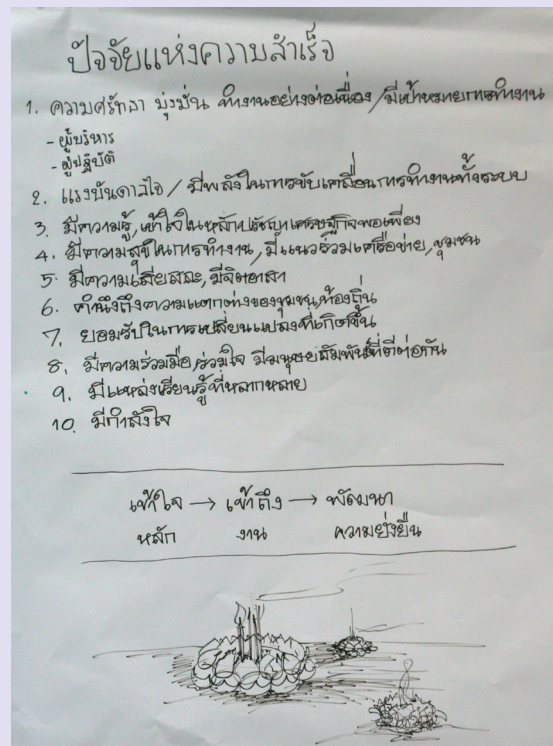 ปัจจัยแห่งความสำเร็จ
1. ความศรัทธา มุ่งมั่น ทำงานอย่างต่อเนื่อง / มีเป้าหมายการทำงาน
- ผู้บริหาร
- ผู้ปฏิบัติ
2. แรงบันดาลใจ / มีพลังในการขับเคลื่อนการทำงานทั้งระบบ
3. มีความรู้, เข้าใจในหลักปรัชญาเศรษฐกิจพอเพียง
4. มีความสุขในการทำงาน, มีแนวร่วมเครือข่าย, ชุมชน
5. มีความเสียสละ, มีจิตอาสา
6. คำนึงถึงความแตกต่างของชุมชนท้องถิ่น
7. ยอมรับในการเปลี่ยนแปลงที่เกิดขึ้น
8. มีความร่วมมือ, ร่วมใจ มีมนุษยสัมพันธ์ที่ดีต่อกัน
9. มีแหล่งเรียนรู้ที่หลากหลาย
10. มีกำลังใจ
เข้าใจ → เข้าถึง → พัฒนา
หลัก งาน ความยั่งยืน